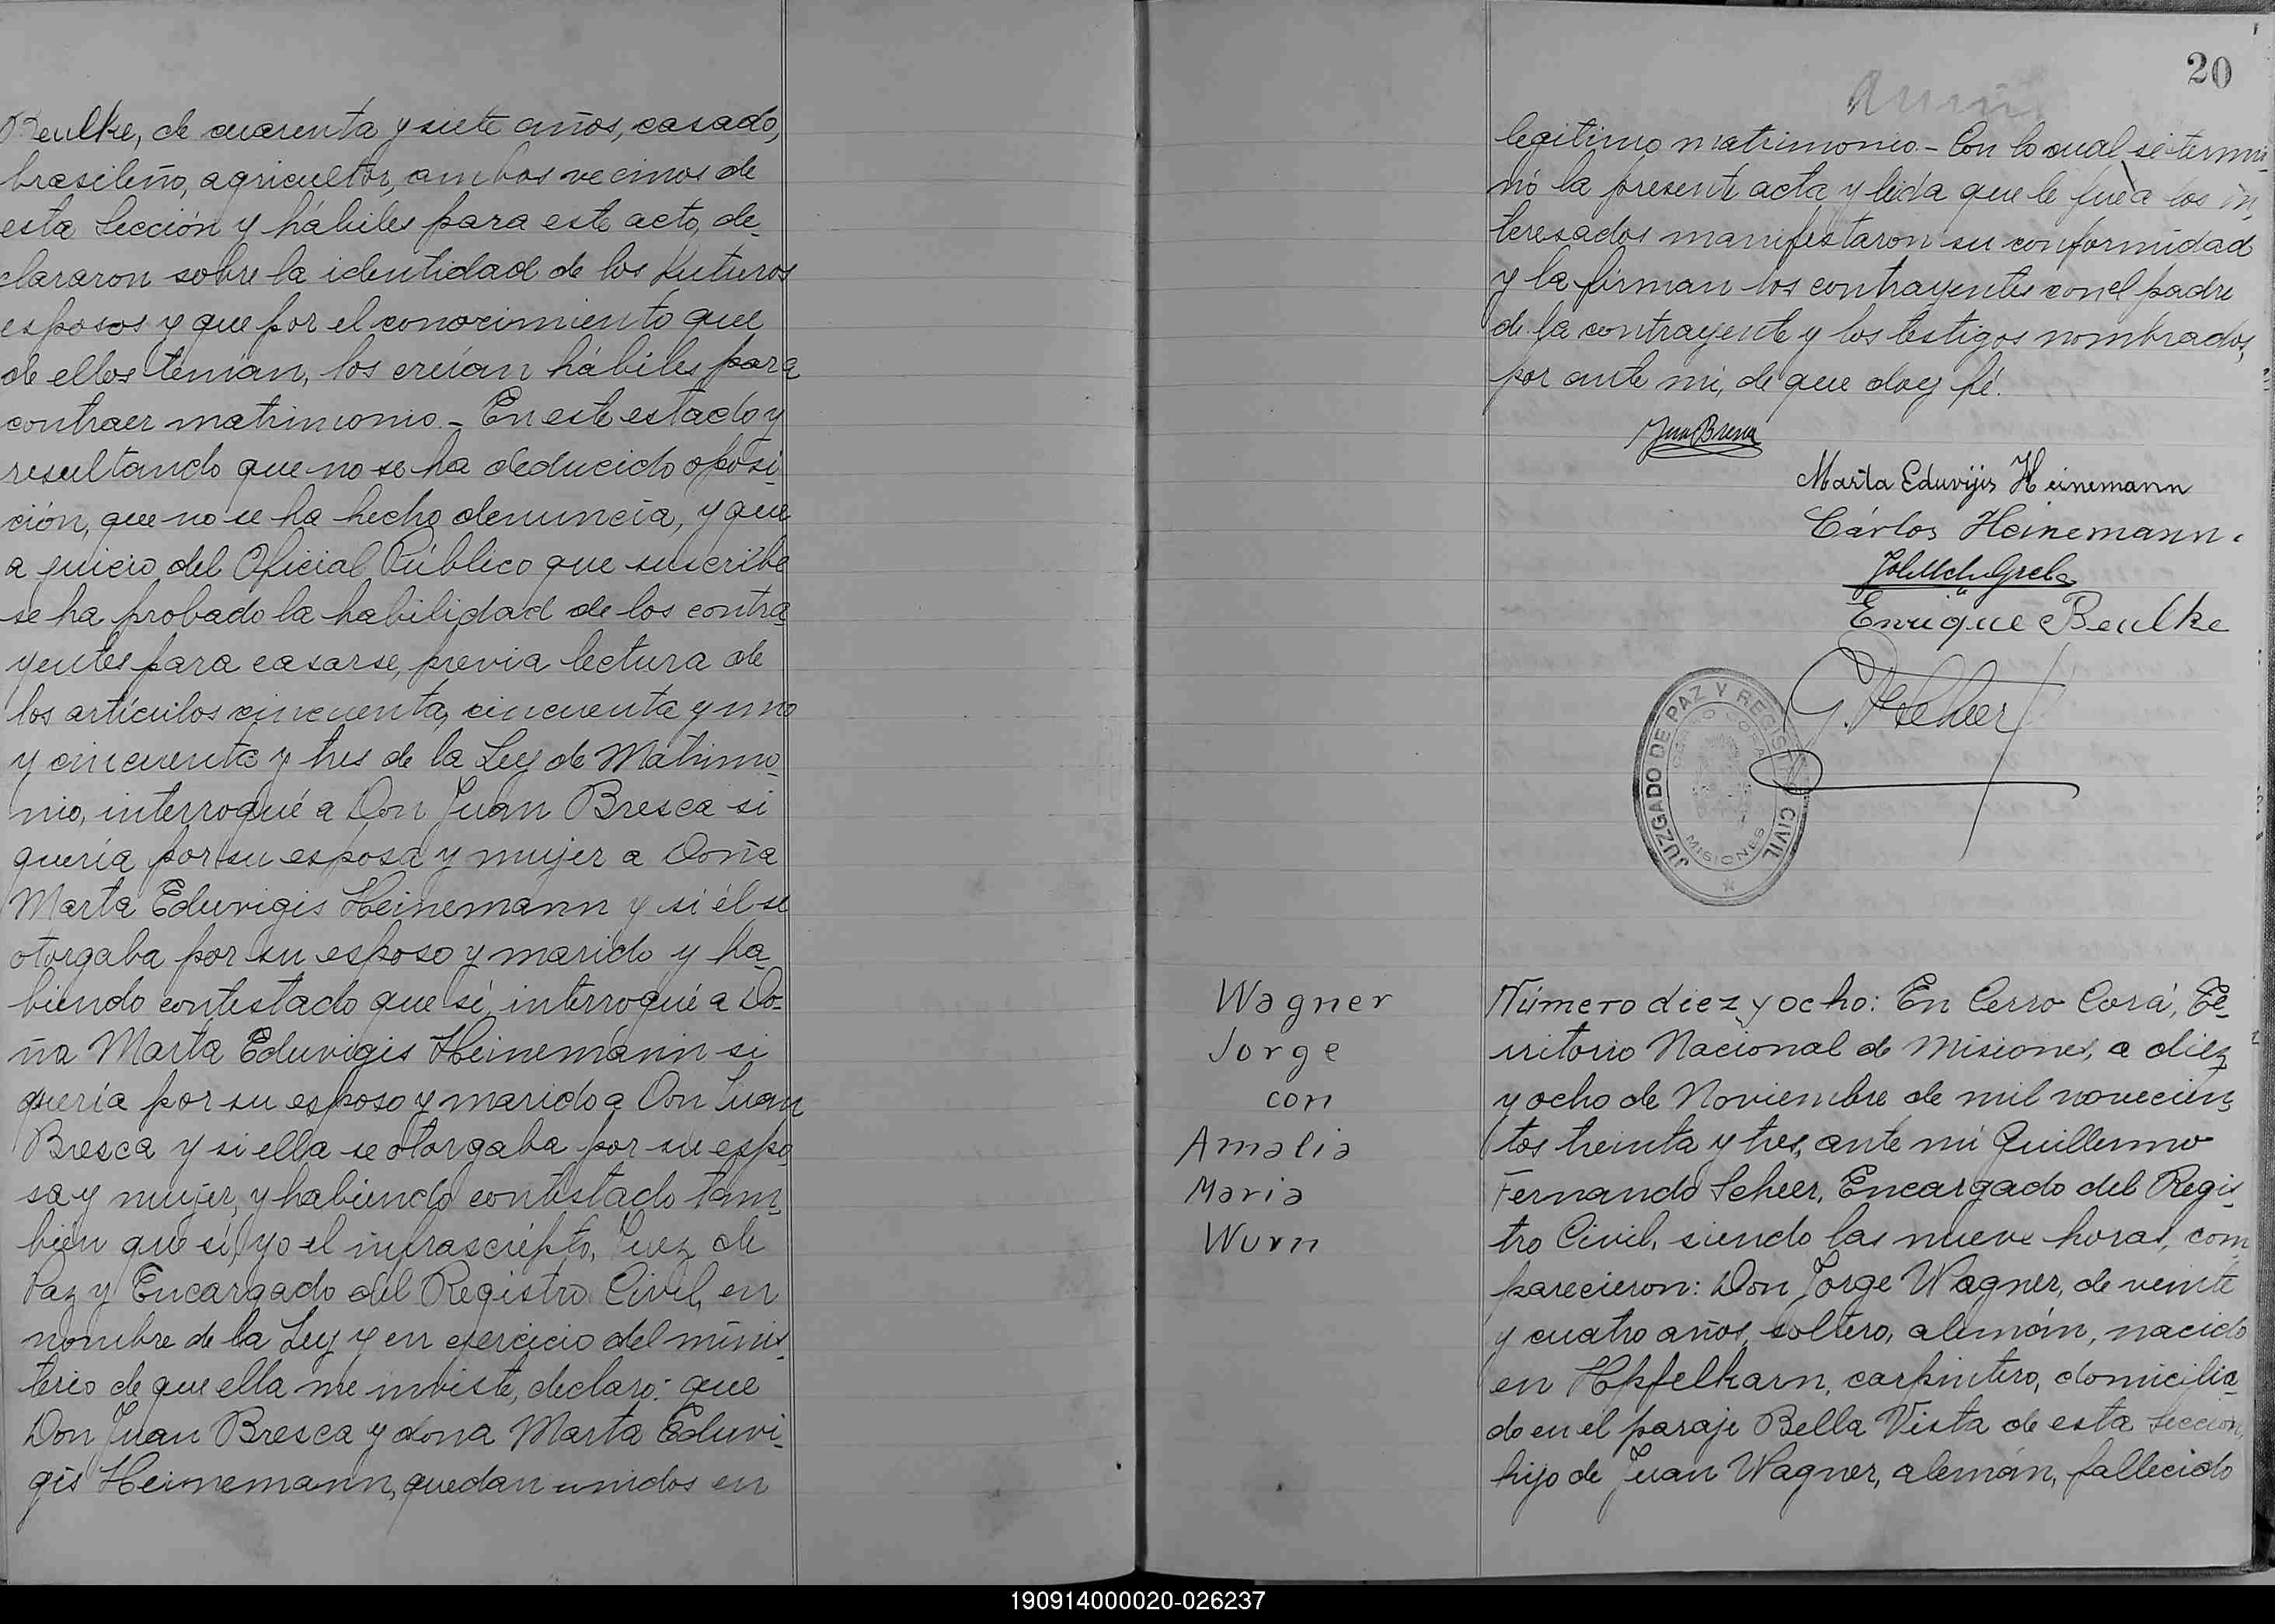 Beulke, de cuarenta y siete años, casado,
brasileño, agricultor, ambos vecinos de
esta Sección y hábiles para este acto, de-
clararon sobre la identidad de los futuros
esposos y que por el conocimiento que
de ellos tenían, los creían hábiles para
contraer matrimonio. - En este estado y
resultando que no se ha deducido oposi-
ción, que no se ha hecho denuncia, y que
a juicio del Oficial Público que suscribe
se ha probado la habilidad de los contra-
yentes para casarse, previa lectura de
los artículos cincuenta, cincuenta y uno
y cincuenta y tres de la Ley de Matrimo-
nio, interrogué a Don Juan Bresca si
quería por su esposa y mujer a Doña
Marta Eduvigis Heinemann y si él se
otorgaba por su esposo y marido y ha-
biendo contestado que sí, interrogué a Do-
ña Marta Eduvigis Heinemann si
quería por su esposo y marido a Don Juan
Bresca y si ella se otorgaba por su espo-
sa y mujer, y habiendo contestado tam-
bién que sí, yo el infrascripto, Juez de
Paz y Encargado del Registro Civil, en
nombre de la Ley y en ejercicio del minis-
terio de que ella me inviste, declaro: que
Don Juan Bresca y dona Marta Eduvi-
gis Heinemann, quedan unidos en
20
legitimo matrimonio. - Con lo cual se termi-
nó la presente acta y leida que le fue a los in-
teresados manifestaron su conformidad
y la firman los contrayentes con el padre
de la contrayente y los testigos nombrados,
por ante mi, de que doy fé.
Marta Eduvijis Heinemann
Cárlos Heinemann.
Enrique Beulke
G. F. Scheer
JUZGADO DE PAZ Y REGISTRO CIVIL
CERRO CORA
MISIONES
Wagner
Jorge
con
Amalia
Maria
Wurn
Número diez y ocho: En Cerro Corá, Te-
rritorio Nacional de Misiones, a diez
y ocho de Noviembre de mil novecien-
tos treinta y tres, ante mi Guillermo
Fernando Scheer, Encargado del Regis-
tro Civil, siendo las nueve horas, com
parecieron: Don Jorge Wagner, de veinte
y cuatro años, soltero, alemán, nacido
en carpintero, domicilia-
do en el paraje Bella Vista de esta Sección,
hijo de Juan Wagner, alemán, fallecido
190914000020-026237